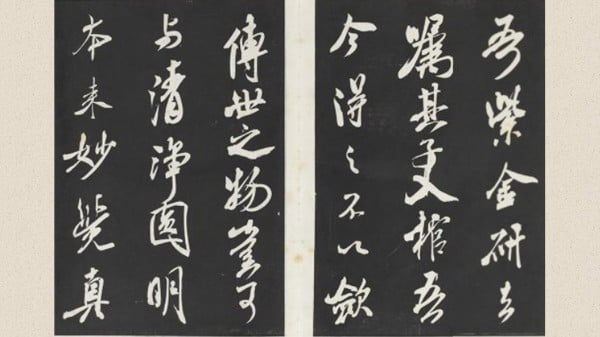 吾紫金研去
嘱其子入棺吾
今得之不以歛
傳世之物豈可
与清浄圓明
本来妙覺真